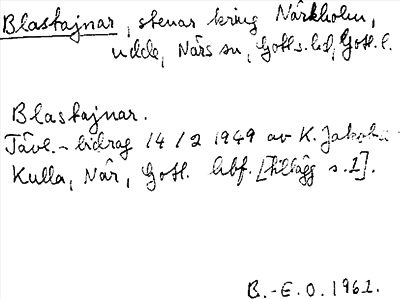 Blastajnar, stenar kring Närkholm,
udde, Närs sn, Gotl. s. hd, Gotl. l.
Blastajnar.
Tävl.-bidrag 14/2 1949 av K. Jakobs
Kulla, När, Gotl. Abf. [Tillägg s. 1].
B.-E.O. 1961.